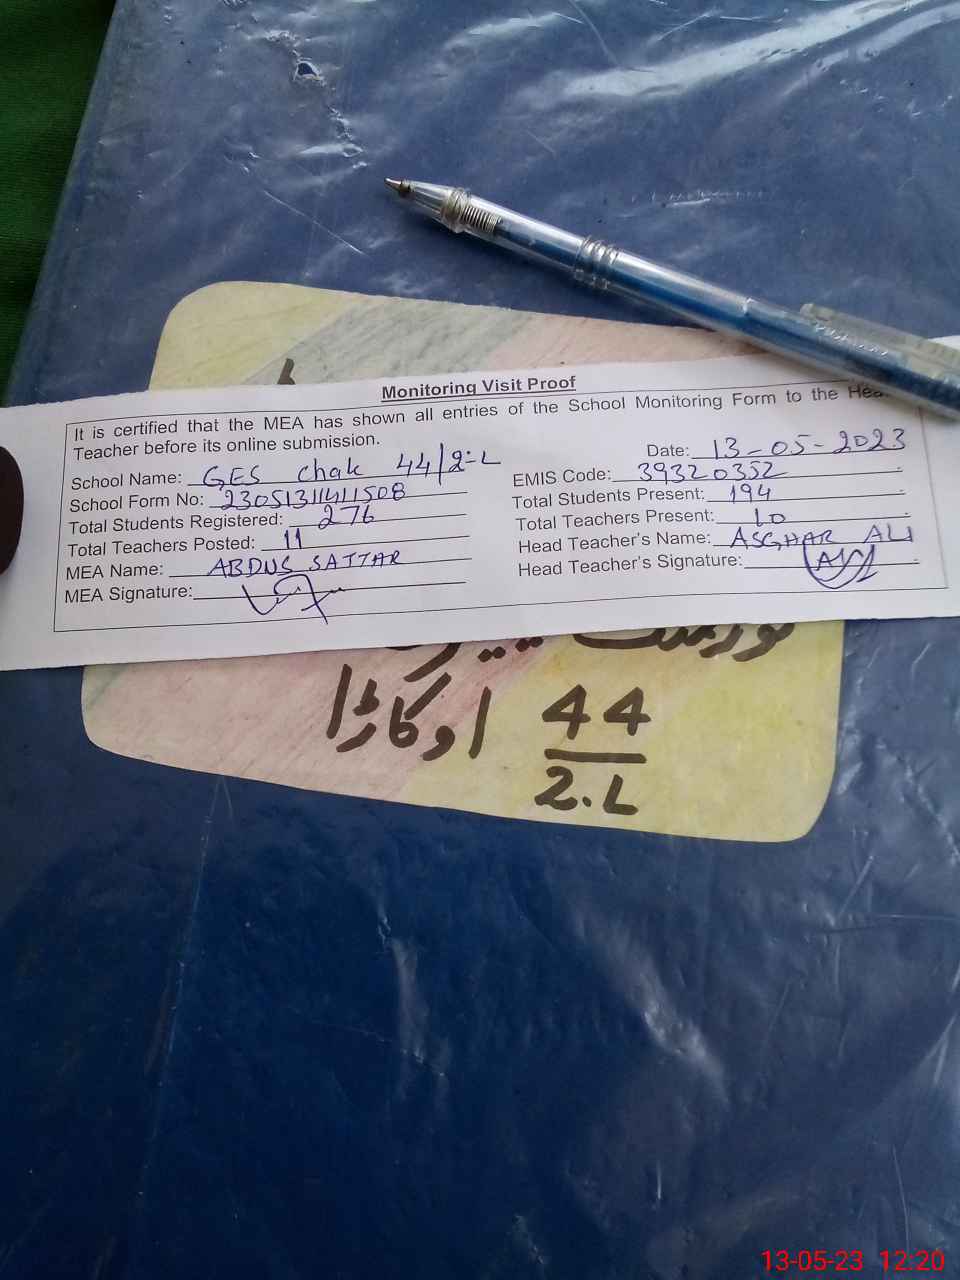 Monitoring Visit Proof
It is certified that the MEA has shown all entries of the School Monitoring Form to the Hea
Teacher before its online submission.
Date: 13-05-2023
School Name: GES Chak 44/2-L
EMIS Code: 39320352
School Form No: 23051311411508
Total Students Present: 194
Total Students Registered: 276
Total Teachers Present: 10
Total Teachers Posted: 11
Head Teacher's Name: ASGHAR ALI
MEA Name: ABDUS SATTAR
Head Teacher's Signature:
MEA Signature:
44 اوکاڑا
2.L
13-05-23 12:20